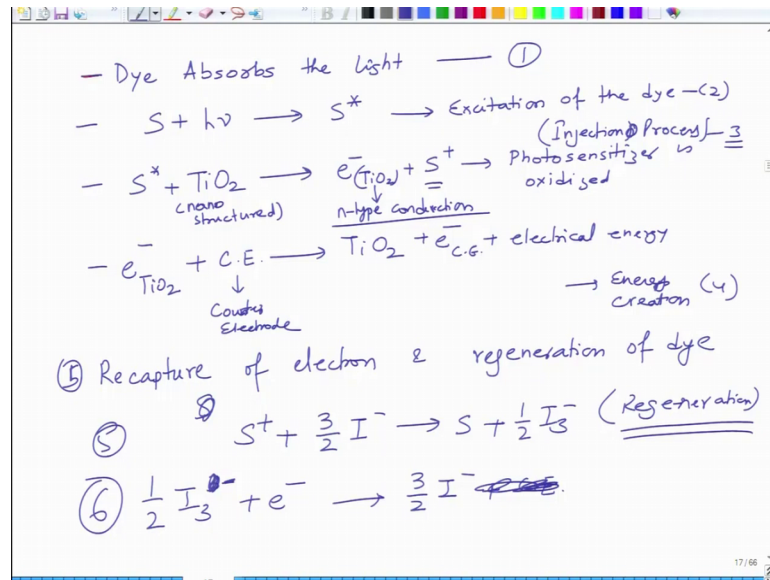 – Dye Absorbs the light —— ①
– S + hν ⟶ S* ⟶ Excitation of the dye –(2)
(Injection Process) – 3
– S* + TiO₂ ⟶ e⁻(TiO₂) + S⁺ ⟶ Photosensitizer is
(nano structured) n-type conduction oxidized
– e⁻TiO₂ + C.E. ⟶ TiO₂ + e⁻C.E. + electrical energy
↓ ⟶ Energy
Counter Creation (4)
Electrode
⑤ Recapture of electron & regeneration of dye
⑤ S⁺ + 3/2 I⁻ ⟶ S + 1/2 I₃⁻ (Regeneration)
⑥ 1/2 I₃⁻ + e⁻ ⟶ 3/2 I⁻
17/66